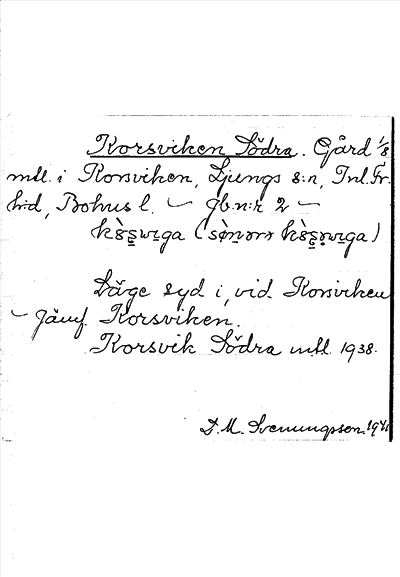 Korsviken Södra. Gård 1/8
mtl. i Korsviken, Ljungs s:n, Inl. Fr.
h:d, Bohus l. – Jb.n:r 2 –
Läge syd i, vid Korsviken
– Jämf. Korsviken.
Korsvik Södra mtl. 1938.
D. M. Svenungsson. 1941